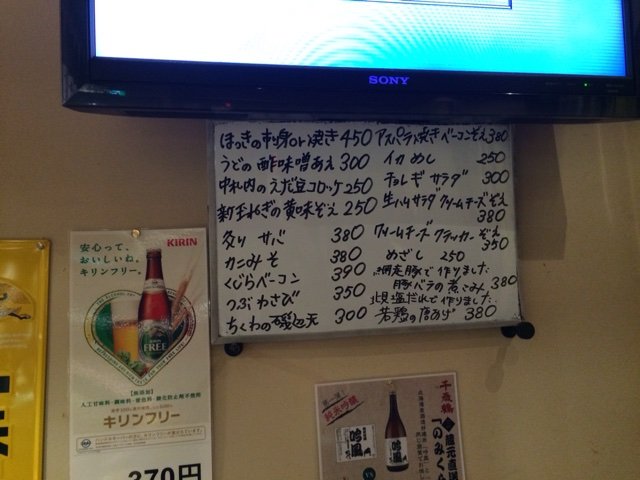 SONY
ほっきの刺身or焼き 450
うどの酢味噌あえ 300
中札内のえだ豆コロッケ 250
新玉ねぎの黄味ぞえ 250
炙りサバ 380
カニみそ 380
くじらベーコン 390
つぶわさび 350
ちくわの磯辺天 300
アスパラ焼きベーコンぞえ 380
イカめし 250
チョレギサラダ 300
生ハムサラダクリームチーズぞえ
380
クリームチーズクラッカーぞえ
350
めざし 250
網走豚で作りました
豚バラの煮こみ 380
北見塩だれで作りました
若鶏の唐あげ 380
安心って、
おいしいね。
キリンフリー。
KIRIN
FREE
【無添加】
人工甘味料・調味料・着色料・酸化防止剤不使用
キリンフリー
370円
第一滴!
純米吟醸
吟風
千歳鶴
蔵元直送